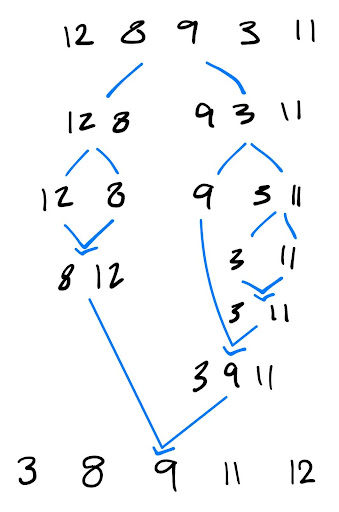 12 8 9 3 11
12 8 9 3 11
12 8 9 3 11
3 11
8 12
3 11
3 9 11
3 8 9 11 12